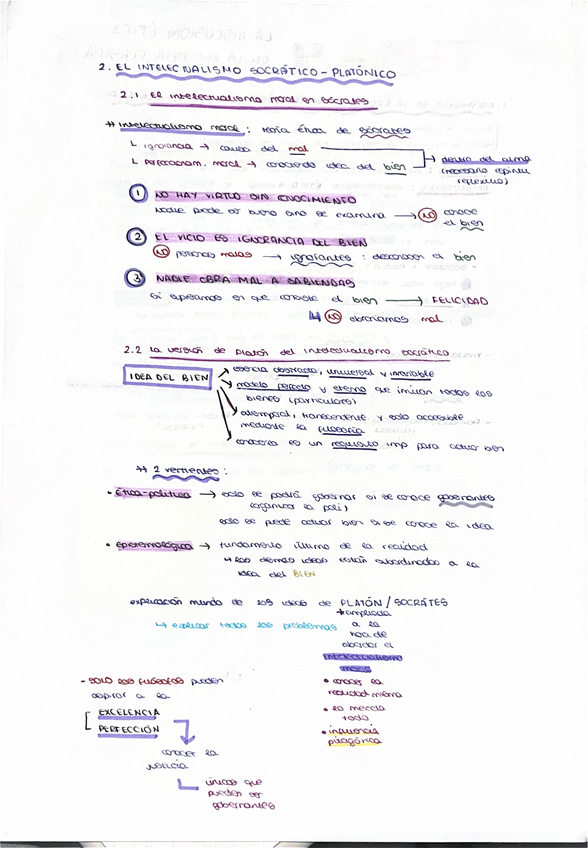 2. EL INTELECTUALISMO SOCRÁTICO-PLATÓNICO
2.1 El intelectualismo moral en Sócrates
* intelectualismo moral: teoría ética de Sócrates
ignorancia → causa del mal
perfeccionam. moral → conociendo idea del bien → dentro del alma
(necesario espíritu
reflexivo)
1 NO HAY VIRTUD SIN CONOCIMIENTO
Nadie puede ser bueno sino se examina → NO conoce
el bien
2 EL VICIO ES IGNORANCIA DEL BIEN
NO personas malas → ignorantes: desconocen el bien
3 NADIE OBRA MAL A SABIENDAS
Si sabemos en que consiste el bien → FELICIDAD
NO obraríamos mal
2.2 La versión de Platón del intelectualismo socrático
IDEA DEL BIEN
esencia abstracta, universal y invariable
modelo perfecto y eterno que imitan todos los
bienes (particulares)
atemporal, transcendente y solo accesible
mediante la filosofía
conocerla es un requisito imp para actuar bien
* 2 vertientes:
• ética-política → solo se podrá gobernar si se conoce gobernantes
(organiza la polis)
solo se pede actuar bien si se conoce la idea
• epistemológica → fundamento último de la realidad
↳ las demás ideas están subordinadas a la
idea del BIEN
explicación mundo de las ideas de PLATÓN / SÓCRATES
↳ explicar todos los problemas
+ampliada
a la
hora de
abordar el
intelectualismo
moral
• conocer la
realidad misma
• lo mezcla
todo
• influencia
pitagórica
- SOLO los filósofos pueden
aspirar a la
EXCELENCIA
PERFECCIÓN
conocer la
justicia
únicos que
pueden ser
gobernantes